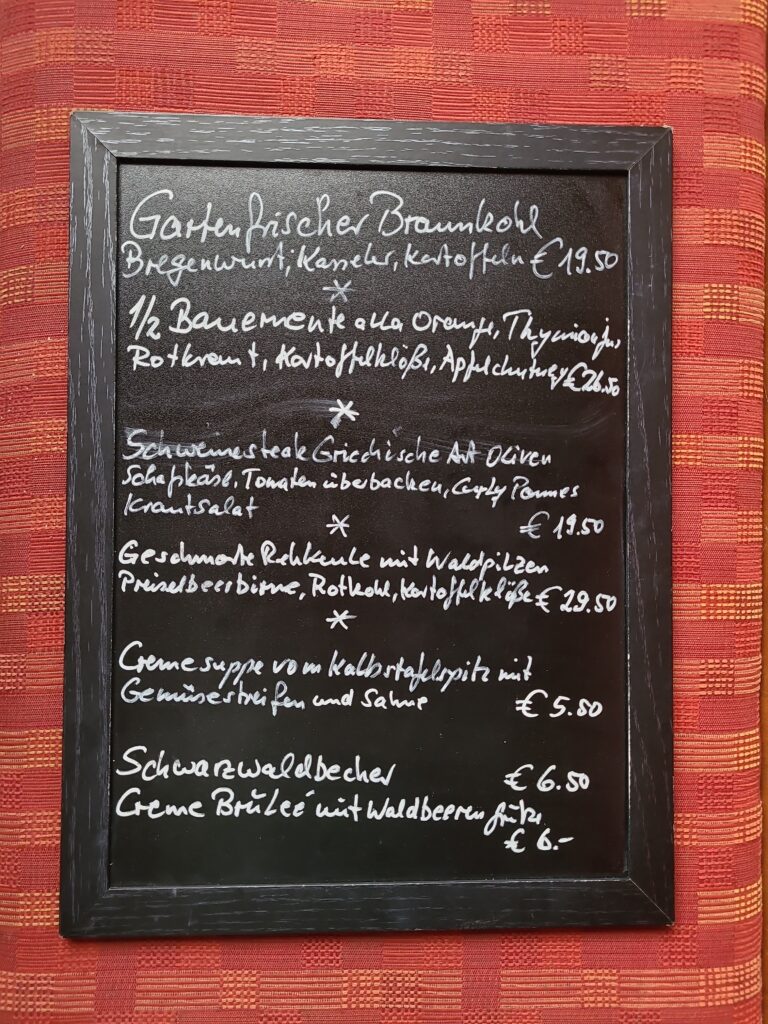 Gartenfrischer Braunkohl
Bregenwurst, Kasseler, Kartoffeln € 19.50
*
1/2 Bauernente alla Orange, Thymianjus
Rotkraut, Kartoffelklöße, Apfelchutney € 26.50
*
Schweinesteak Griechische Art Oliven
Schafskäse, Tomaten überbacken, Curly Pommes
Krautsalat
€ 19.50
*
Geschmorte Rehkeule mit Waldpilzen
Preiselbeerbirne, Rotkohl, Kartoffelklöße € 29.50
*
Cremesuppe vom Kalbstafelspitz mit
Gemüsestreifen und Sahne € 5.50
Schwarzwaldbecher € 6.50
Creme Brûleé mit Waldbeerengrütze
€ 6.-